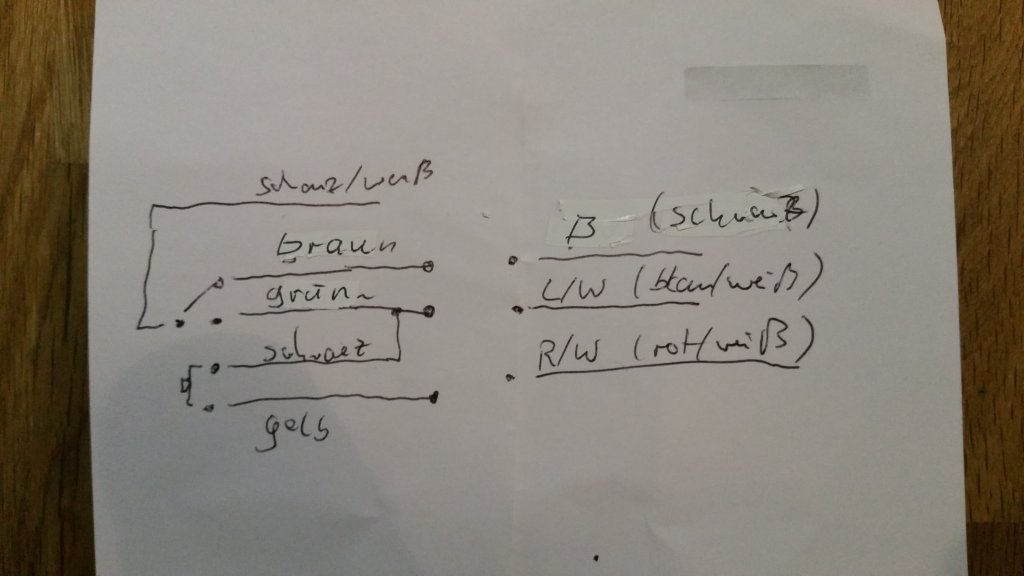 schwarz/weiß
braun
grün
schwarz
gelb
B (schwarz)
L/W (blau/weiß)
R/W (rot/weiß)